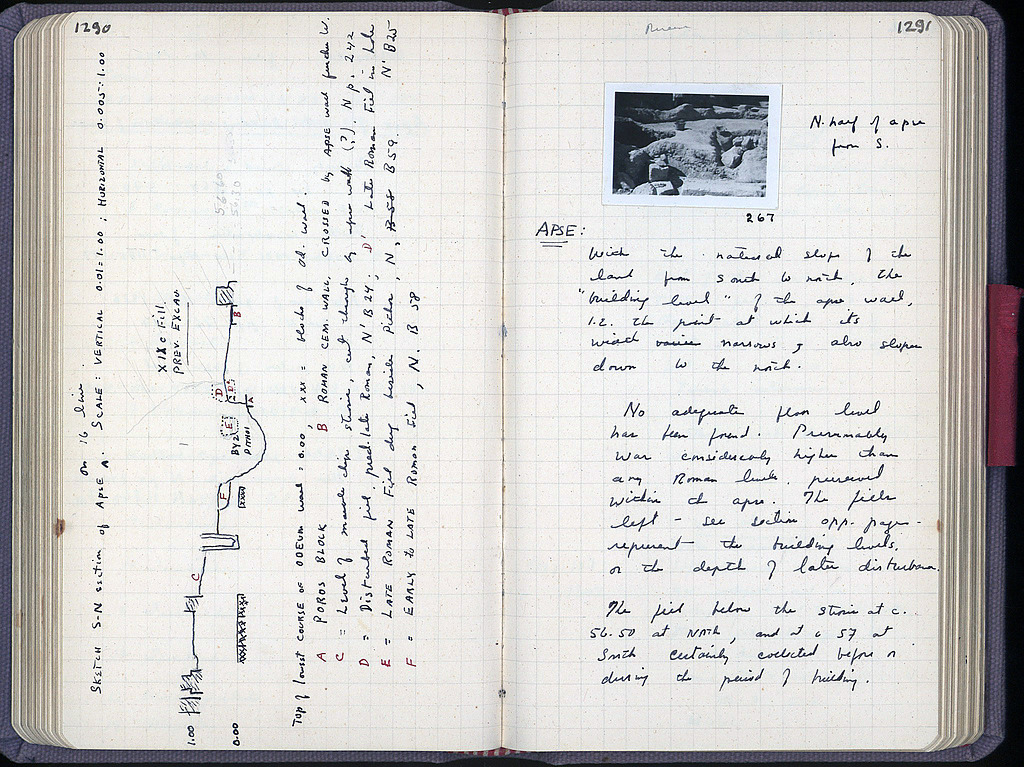 1290
SKETCH S-N section of APSE A. on 16 line. SCALE: VERTICAL 0.01 = 1.00 ; HORIZONTAL 0.005 = 1.00
56.60
XIX c Fill
PREV. EXCAV.
B
D
D'
A
E
BYZ
PITHOI
F
C
1.00
0.00
Top of lowest COURSE OF ODEUM wall = 0.00, xxx = blocks of Od. wall.
A POROS BLOCK B ROMAN CEM. WALL, CROSSED by APSE wall further W.
C = Level of marble chip stratum, cut through by apse wall (?). N p. 242
D = Disturbed fill, pred. late Roman, N' B 24 ; D' Late Roman Fill in hole
E = LATE ROMAN Fill dug beside Pithos, N, B 58 B 59. N' B25
F = EARLY to LATE ROMAN Fill, N. B 58
1291
N. half of apse
from S.
267
APSE:
With the natural slope of the
land from South to north, the
"building level" of the apse wall,
i.e. the point at which its
width narrows, also slopes
down to the north.
No adequate floor level
has been found. Presumably
was considerably higher than
any Roman levels preserved
within the apse. The fills
left - see section opp. page -
represent the building levels,
or the depth of later disturbance.
The fill below the stones at c.
56.50 at North, and at c 57 at
South certainly collected before or
during the period of building.